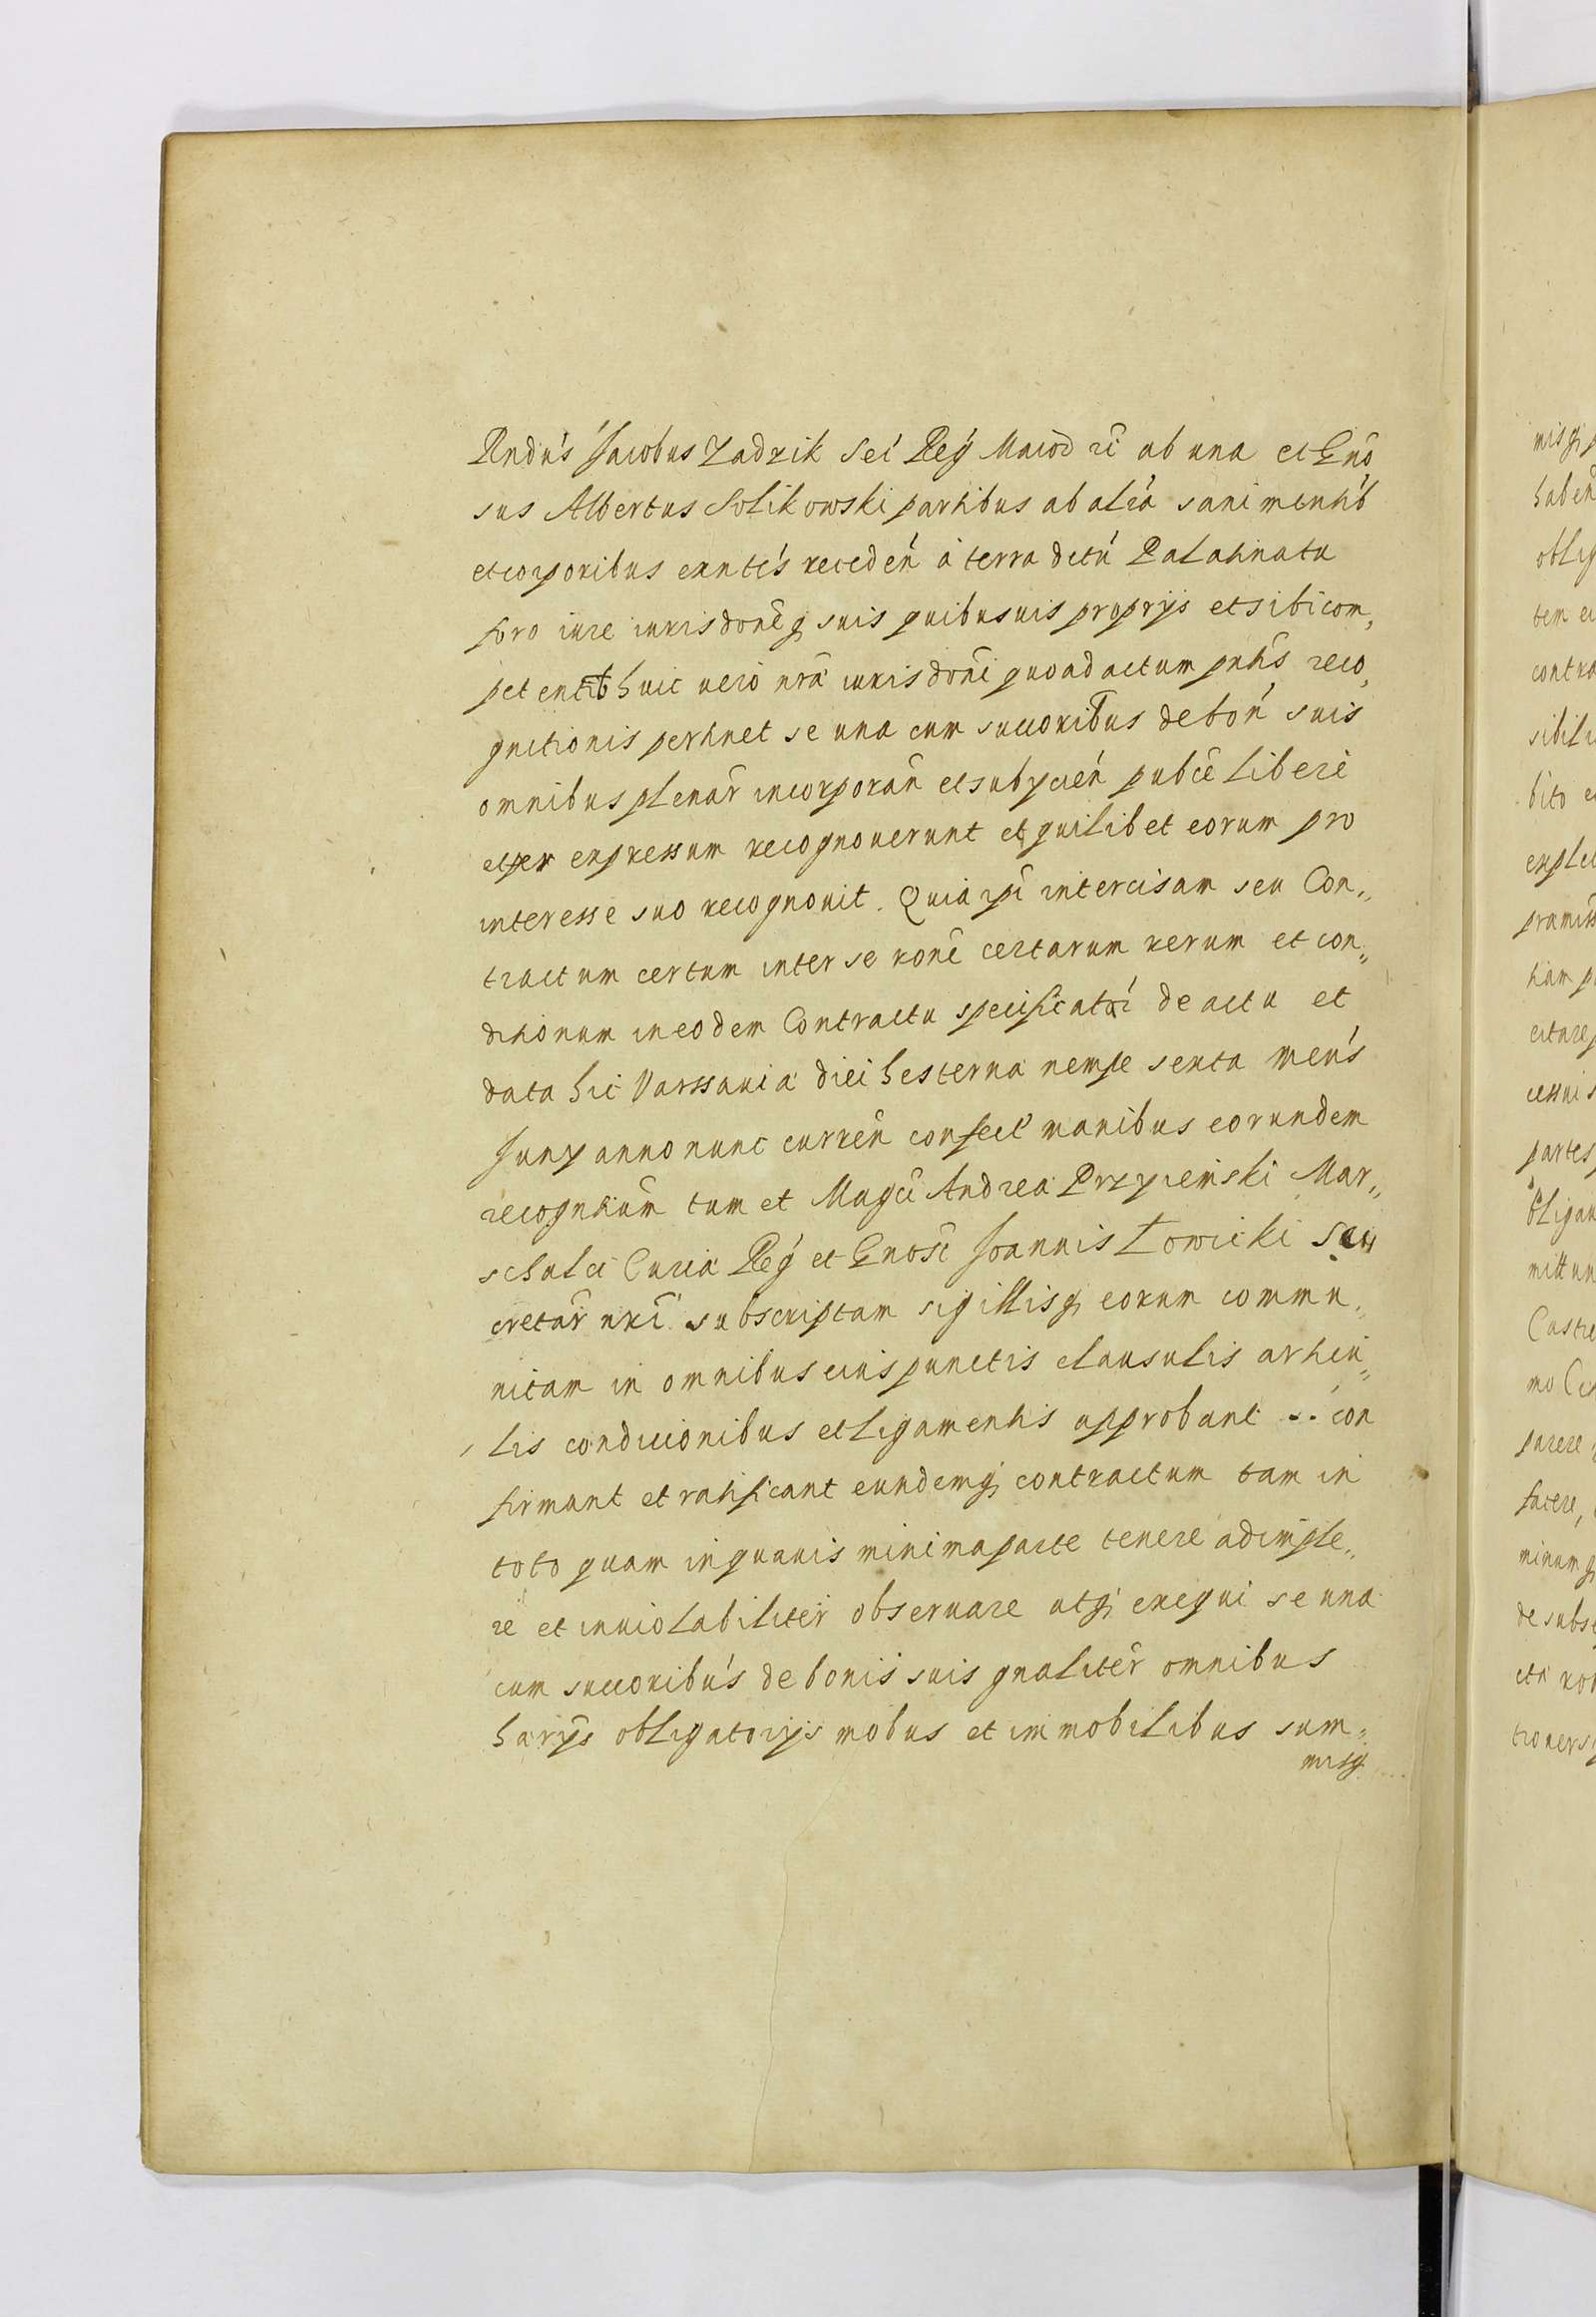 Rndus Jacobus Zadzik Sei Reg Maiod ri ab una et Gno
sus Albertus Solikowski partibus ab alia sani mentib
et corporibus exntes receden a terra dctu Palatinatu
foro iure iurisdoneq suis quibusuis proprijs et sibi com,
petentib huic uero nra iurisdoni quoad actum pntis reco,
gnitionis pertinet se una cum succoribus de bon suis
omnibus plenar incorporan et subycien publce libere
et per expressum recognouerunt et quilibet eorum pro
interesse suo recognouit. Quia ipi intercisam seu Con„
tractum certum inter se rone certarum rerum et con„
ditionum in eodem Contractu specificator de actu et
data hic Varssauia diei hesterna nempe sexta mens
Juny anno nunc curren confect manibus eorundem
recogntium tum et Magci Andrea Przyiemski Mar„
schalci Curia Reg et Gnosi Joannis Łowicki Se„
cretar nri subscriptam sigillisq eorum commu„
nitam in omnibus eius punctis clausulis articu„
lis condicionibus et ligamentis approbant .. con
firmant et ratificant eundemq contractum tam in
toto quam in quauis minima parte tenere adimple„
re et inuiolabiliter observare utq exequi se una
cum succoribus de bonis suis gnaliter omnibus
harijs obligatorijs mobus et immobilibus sum„
misq
misq
haben
oblig
tem
contra
bito
exple
pramiss
tiam
citare
partes
obligan
mittun
Castre
parere
facere,
minumq
de subs
trouers